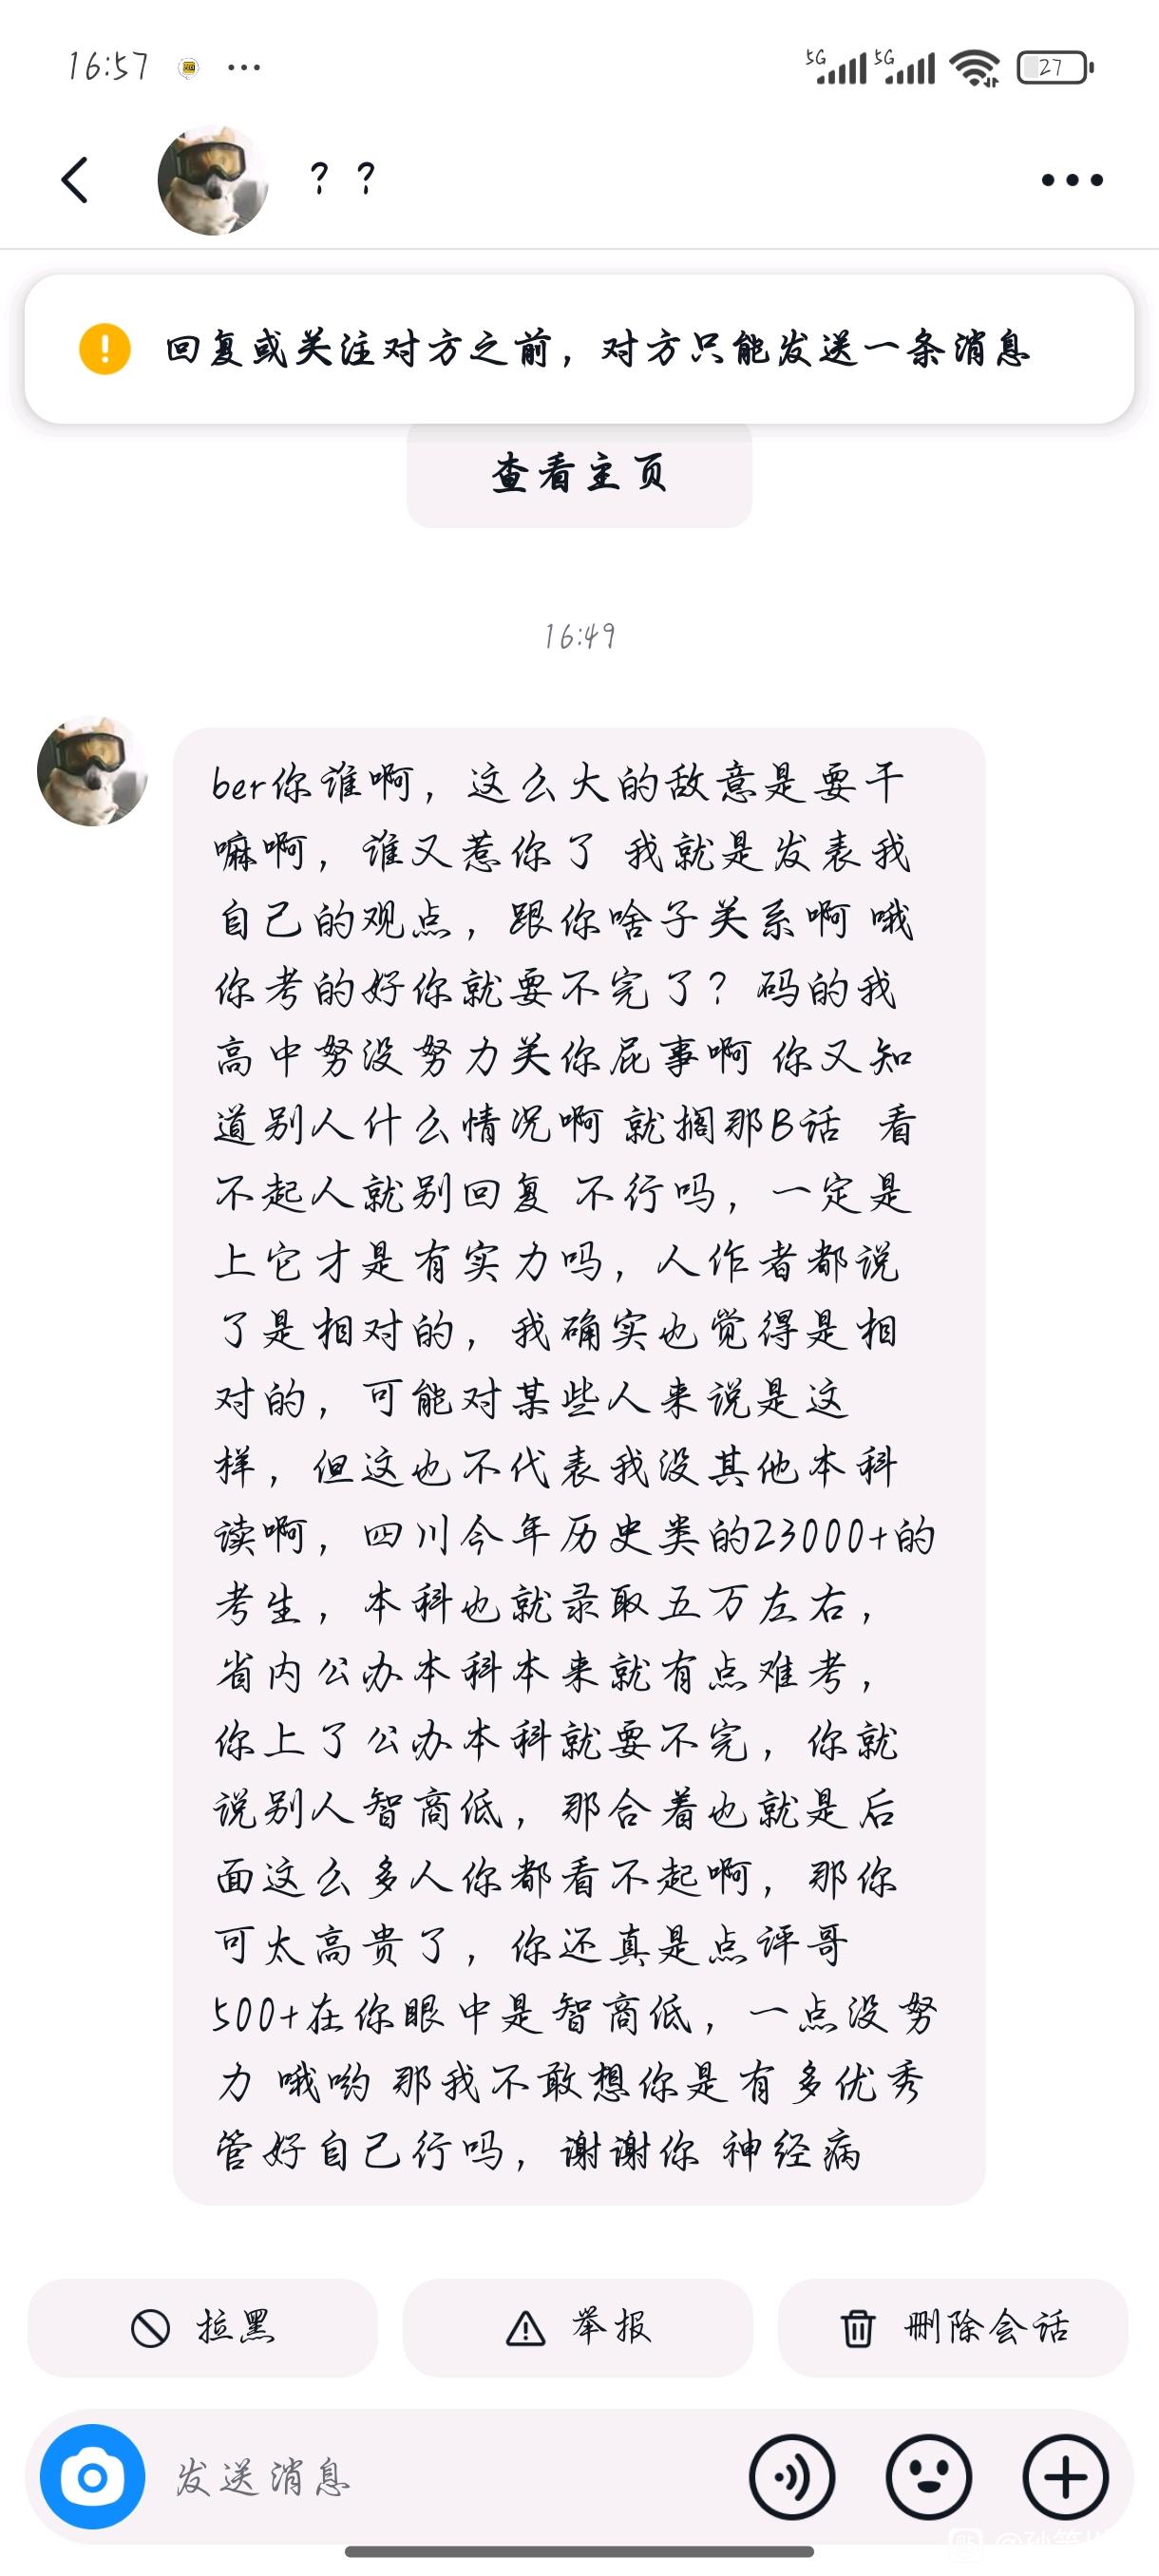 16:57
5G 5G 27
? ?
回复或关注对方之前，对方只能发送一条消息
查看主页
16:49
ber你谁啊，这么大的敌意是要干
嘛啊，谁又惹你了 我就是发表我
自己的观点，跟你啥子关系啊 哦
你考的好你就要不完了？码的我
高中努没努力关你屁事啊 你又知
道别人什么情况啊 就搁那B话 看
不起人就别回复 不行吗，一定是
上它才是有实力吗，人作者都说
了是相对的，我确实也觉得是相
对的，可能对某些人来说是这
样，但这也不代表我没其他本科
读啊，四川今年历史类的23000+的
考生，本科也就录取五万左右，
省内公办本科本来就有点难考，
你上了公办本科就要不完，你就
说别人智商低，那合着也就是后
面这么多人你都看不起啊，那你
可太高贵了，你还真是点评哥
500+在你眼中是智商低，一点没努
力 哦哟 那我不敢想你是有多优秀
管好自己行吗，谢谢你 神经病
拉黑 举报 删除会话
发送消息